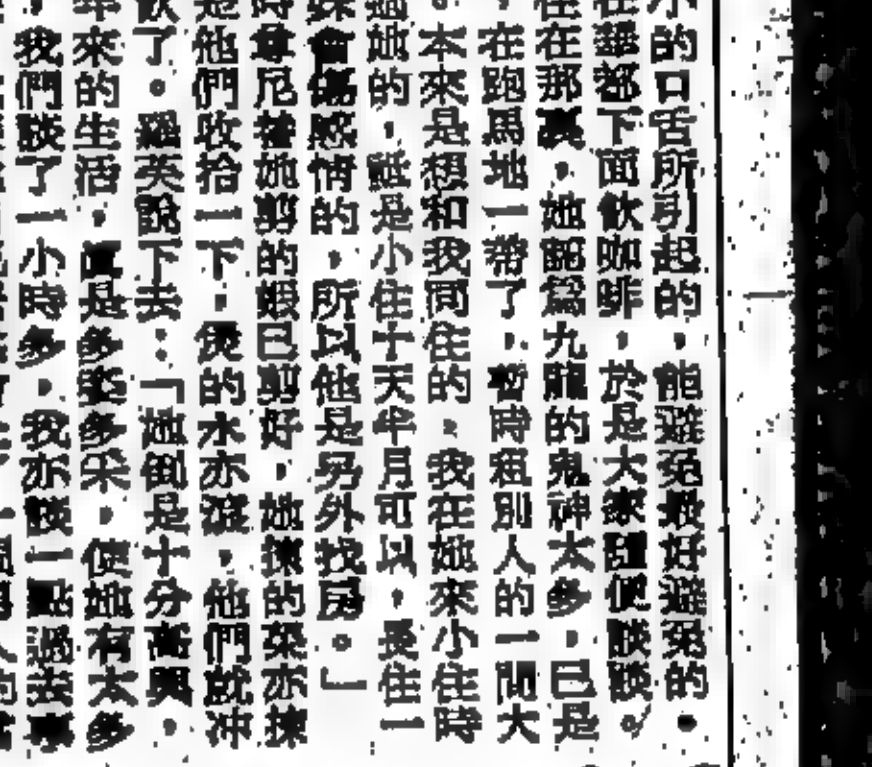 的口舌所引起的，能避免最好避免的。
在華都下面飲咖啡，於是大家隨便談談。
住在那裏，她認為九龍的鬼神太多，已是
，在跑馬地一帶了，暫時租別人的一間大
。本來是想和我同住的，我在她來小住時
過她的，祗是小住十天半月可以，長住一
會傷感情的，所以他是另外找房。」
時拿尼替她剪的蝦已剪好，她揀的菜亦揀
是他們收拾一下，煲的水亦滾，他們就冲
飲了。羅英說下去：「她倒是十分高興，
年來的生活，真是多姿多采，使她有太多
，我們談了一小時多，我亦談一點過去事